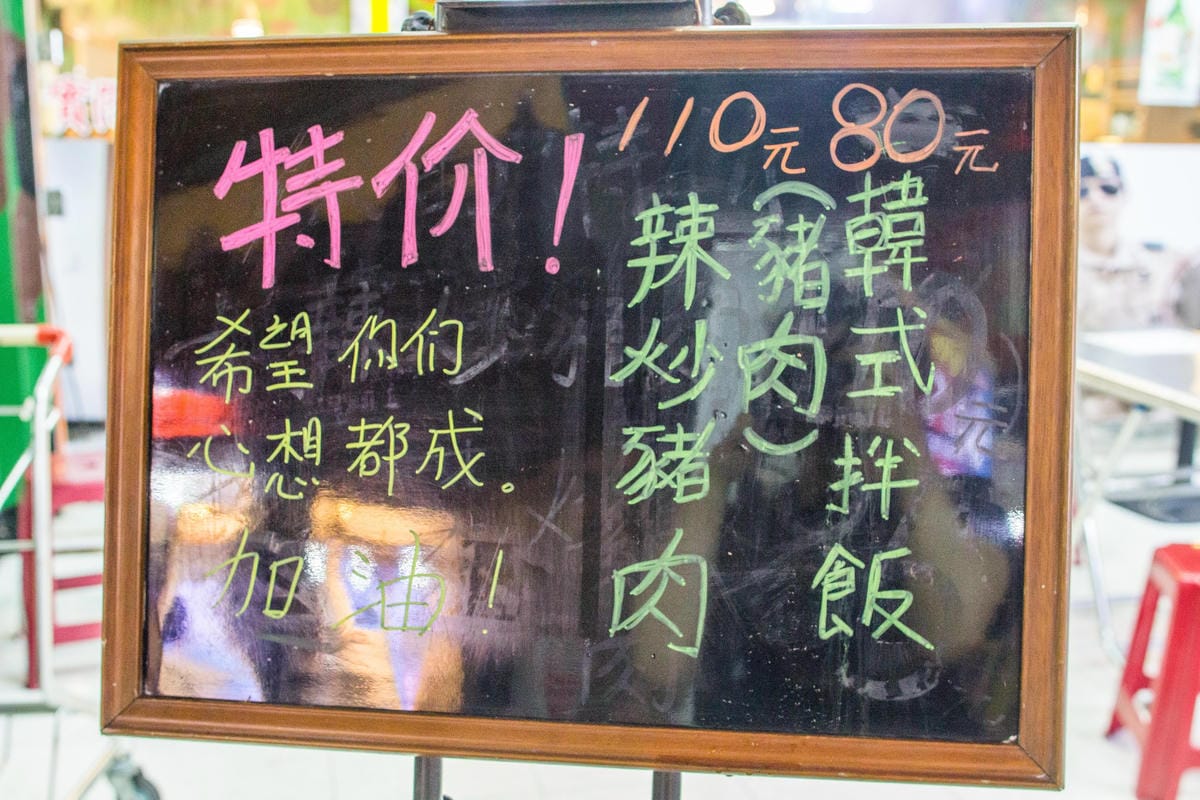 特价！
希望你们
心想都成。
加油！
110元
80元
韓式拌飯
（豬肉）
辣炒豬肉